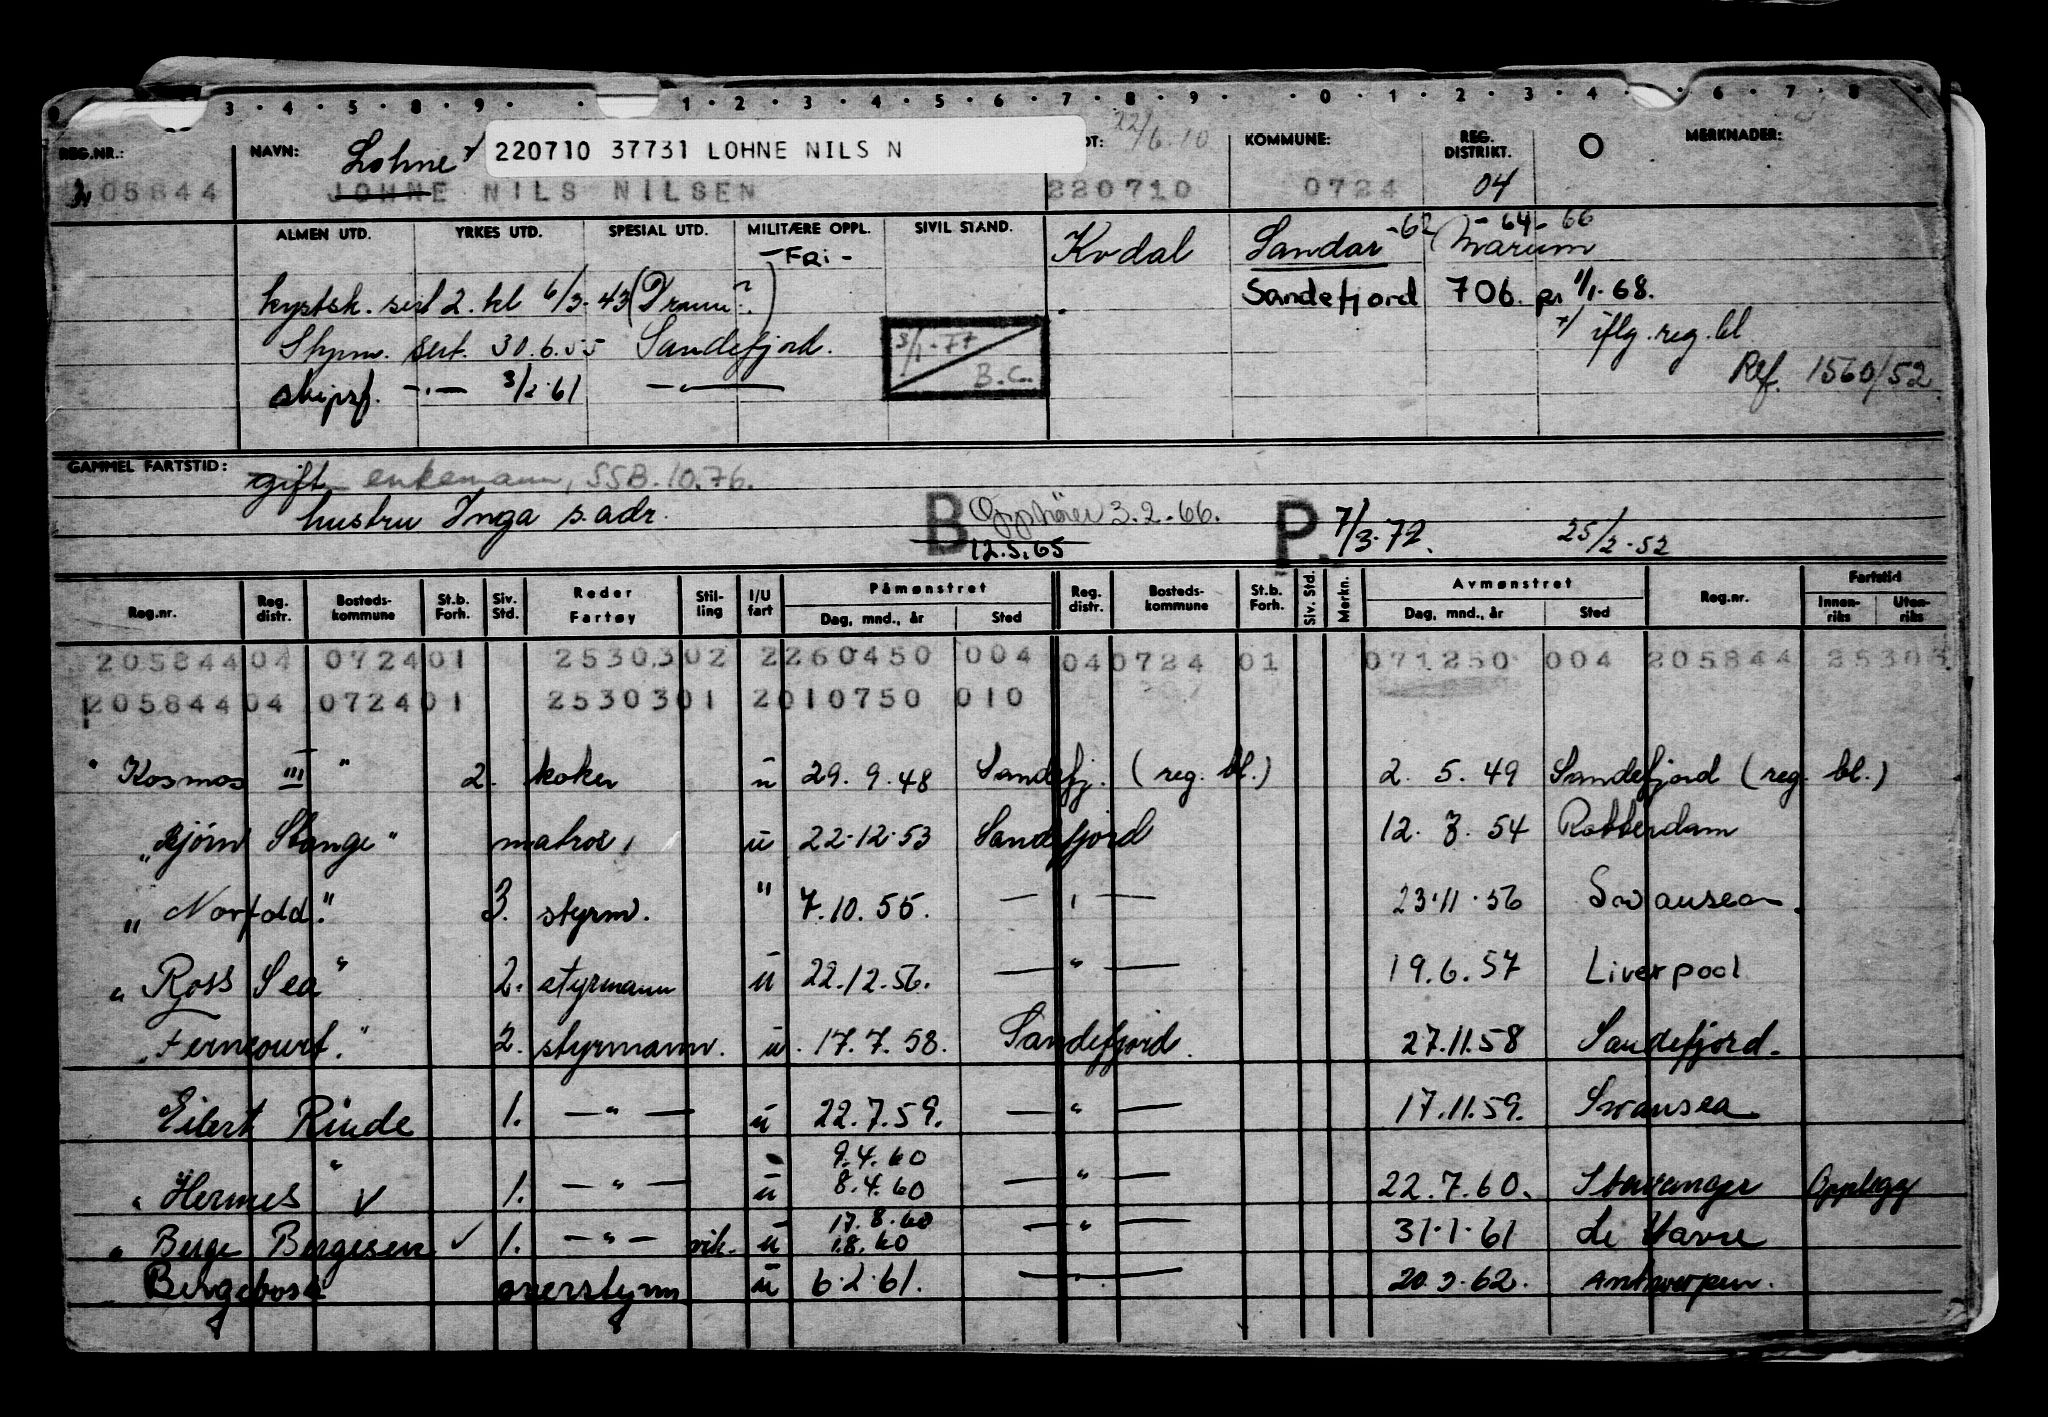 3 · 4 · 5 · 8 · 9 · 1 · 2 · 3 · 4 · 5 · 6 · 7 · 8 · 9 · 0 · 1 · 2 · 3 · 4 · 6 · 7 · 8
REG.NR.: NAVN: Lohne 220710 37731 LOHNE NILS N 22/6.10 KOMMUNE: REG. DISTRIKT. O MERKNADER:
205844 JOHNE NILS NILSEN 220710 0724 04
ALMEN UTD. YRKES UTD. SPESIAL UTD. MILITÆRE OPPL. SIVIL STAND.
- Fri - Kodal Sandar -62 - 64 - 66
kystsk. sert 2. kl 6/3-43 Sandefjord 706. pr 1/1-68.
Styrm. sert. 30.6.55 Sandefjord. 3/1-77 iflg. reg. bl
skipsf. -"- 3/2-61 -"- B.C. Ref. 1560/52
GAMMEL FARTSTID: gift enkemann, SSB. 10.76.
hustru Inga s. adr. B Opphører 3.2.66. P. 7/3-72. 25/2-52
12.5.65
Reg.nr. Reg. distr. Bosteds- kommune St.b. Forh. Siv. Std. Reder Fartøy Stil- ling I/U fart Påmønstret Dag, mnd., år Sted Reg. distr. Bosteds- kommune St.b. Forh. Siv. Std. Merkn. Avmønstret Dag, mnd., år Sted Reg.nr. Fartstid Innen- riks Uten- riks
205844 04 0724 01 25303 02 2 260450 004 04 0724 01 071250 004 205844 25303
205844 04 0724 01 25303 01 2 010750 010
" Kosmos III " 2. koker u 29.9.48 Sandefj. (reg. bl.) 2.5.49 Sandefjord (reg. bl.)
" Bjørn Stange " matros, u 22.12.53 Sandefjord 12.3.54 Rotterdam
" Norfold." 3. styrm. " 7.10.55. - " - 23.11.56 Swansea.
" Ross Sea " 2. styrmann u 22.12.56. - " - 19.6.57 Liverpool
" Ferncourt." 2. styrmann. u. 17.7.58. Sandefjord. 27.11.58 Sandefjord.
Eilert Rinde 1. - " - u 22.7.59. - " - 17.11.59. Swansea
9.4.60
" Hermes " V 1. - " - u 8.4.60 - " - 22.7.60. Stavanger Opplegg
17.8.60
" Berge Bergesen ✓ 1. - " - vik. u 1.8.60 - " - 31.1.61 Le Havre
Bergeboss overstyrm u 6.2.61. - " - 20.3.62. Antwerpen.